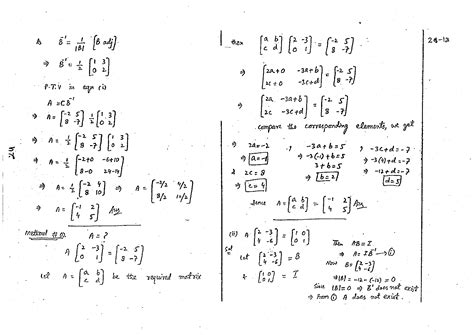 As B⁻¹ = 1/|B| [B adj]
⇒ B⁻¹ = 1/2 [1 3; 0 2]
P.T.V in eqn (i)
A = CB⁻¹
⇒ A = [-2 5; 8 -7] 1/2 [1 3; 0 2]
⇒ A = 1/2 [-2 5; 8 -7] [1 3; 0 2]
⇒ A = 1/2 [-2+0 -6+10; 8-0 24-14]
⇒ A = 1/2 [-2 4; 8 10] ⇒ A = [-2/2 4/2; 8/2 10/2]
⇒ A = [-1 2; 4 5] Ans
Method # A = ?
A [2 -3; 0 -1] = [-2 5; 8 -7]
Let A = [a b; c d] be the required matrix
then [a b; c d] [2 -3; 0 1] = [-2 5; 8 -7]
⇒ [2a+0 -3a+b; 2c+0 -3c+d] = [-2 5; 8 -7]
⇒ [2a -3a+b; 2c -3c+d] = [-2 5; 8 -7]
compare the corresponding elements, we get
2a=-2 , -3a+b=5 , -3c+d=-7
⇒ a=-1 ⇒ -3(-1)+b=5 ⇒ -3(4)+d=-7
& 2c=8 3+b=5 ⇒ -12+d=-7
⇒ c=4 ⇒ b=2 d=5
Hence A = [a b; c d] = [-1 2; 4 5] Ans
(ii) A [2 -3; 4 -6] = [1 0; 0 1]
Sol Let [2 -3; 4 -6] = B
& [1 0; 0 1] = I
Then AB = I
⇒ A = IB⁻¹ → (i)
Now B = [2 -3; 4 -6]
⇒ |B| = -12-(-12) = 0
Since |B| = 0 ⇒ B⁻¹ does not exist
⇒ From (i) A does not exist.
24